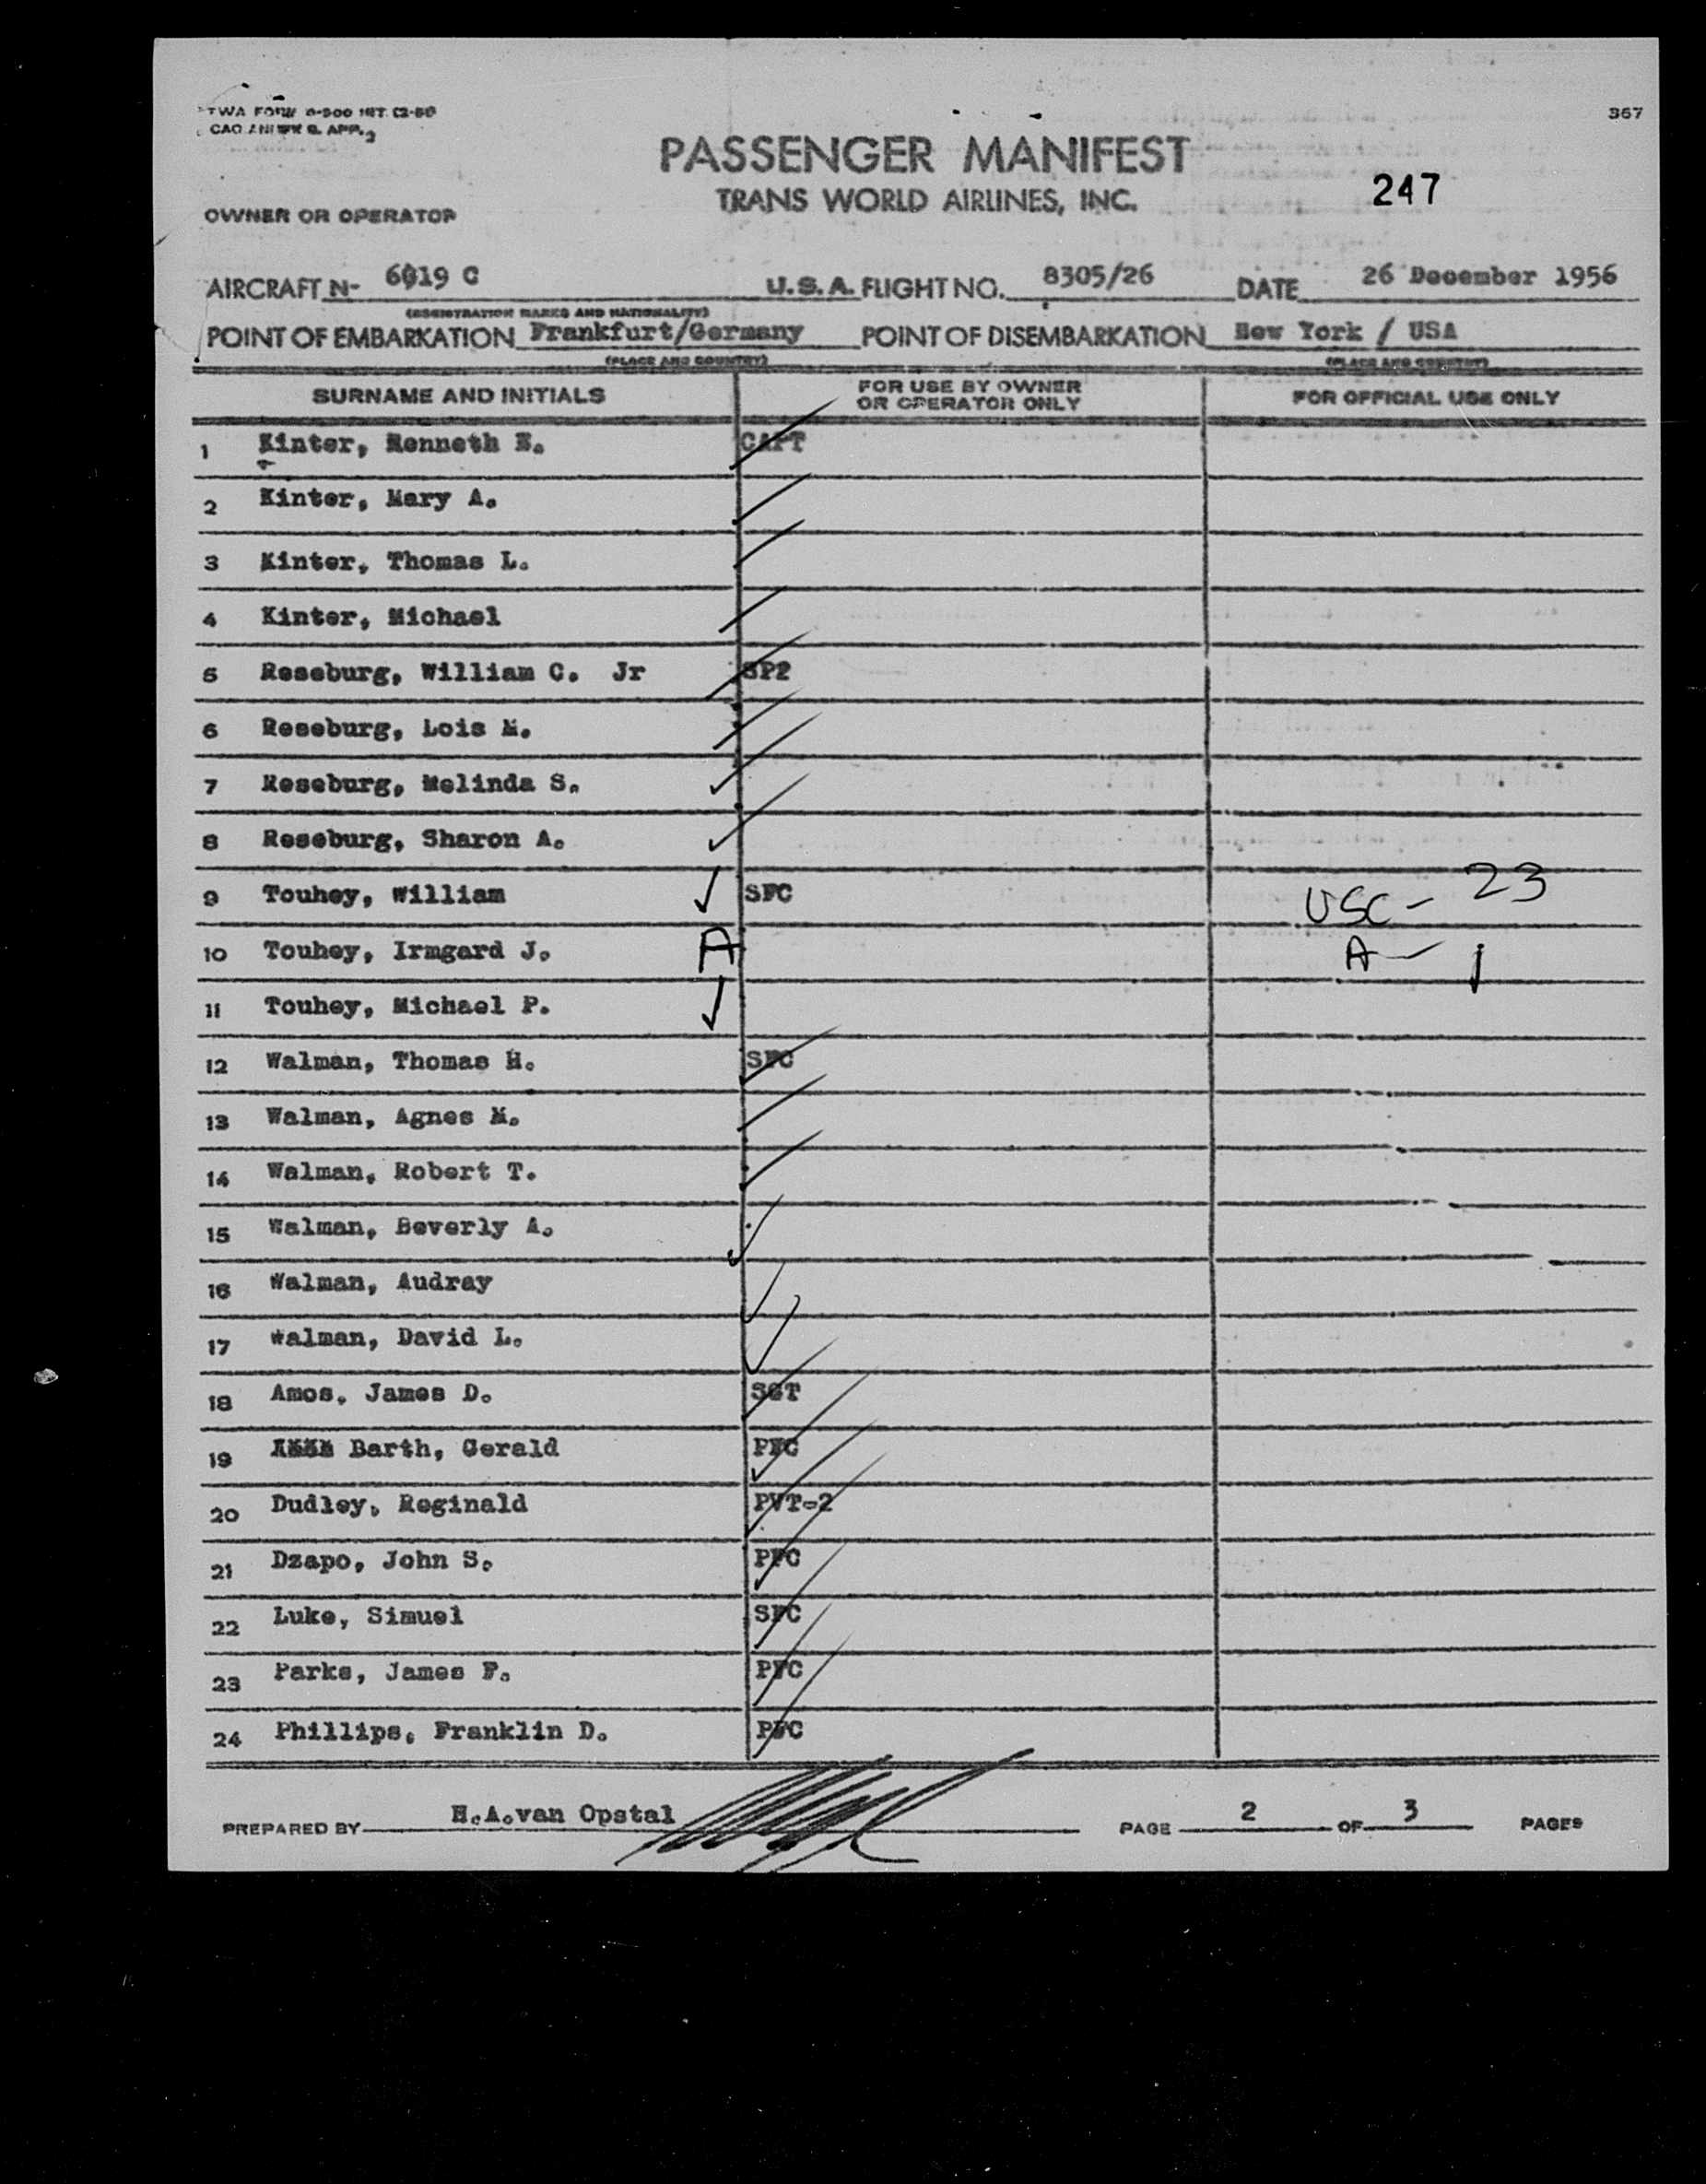 TWA FORM 0-500 INT.
367
PASSENGER MANIFEST
TRANS WORLD AIRLINES, INC.
247
OWNER OR OPERATOR
AIRCRAFT N- 6919 C U.S.A. FLIGHT NO. 8305/26 DATE 26 December 1956
(REGISTRATION MARKS AND NATIONALITY)
POINT OF EMBARKATION Frankfurt/Germany POINT OF DISEMBARKATION New York / USA
(PLACE AND COUNTRY) (PLACE AND COUNTRY)
SURNAME AND INITIALS FOR USE BY OWNER OR OPERATOR ONLY FOR OFFICIAL USE ONLY
1 Kinter, Kenneth E. CAPT
2 Kinter, Mary A.
3 Kinter, Thomas L.
4 Kinter, Michael
5 Reseburg, William C. Jr SP2
6 Reseburg, Lois M.
7 Reseburg, Melinda S.
8 Reseburg, Sharon A.
9 Touhey, William SFC USC - 23
10 Touhey, Irmgard J. A A - 1
11 Touhey, Michael P.
12 Walman, Thomas H. SFC
13 Walman, Agnes M.
14 Walman, Robert T.
15 Walman, Beverly A.
16 Walman, Audray
17 Walman, David L.
18 Amos, James D. SGT
19 Barth, Gerald PFC
20 Dudley, Reginald PVT-2
21 Dzapo, John S. PFC
22 Luke, Simuel SFC
23 Parks, James F. PFC
24 Phillips, Franklin D. PFC
PREPARED BY H.A.van Opstal PAGE 2 OF 3 PAGES